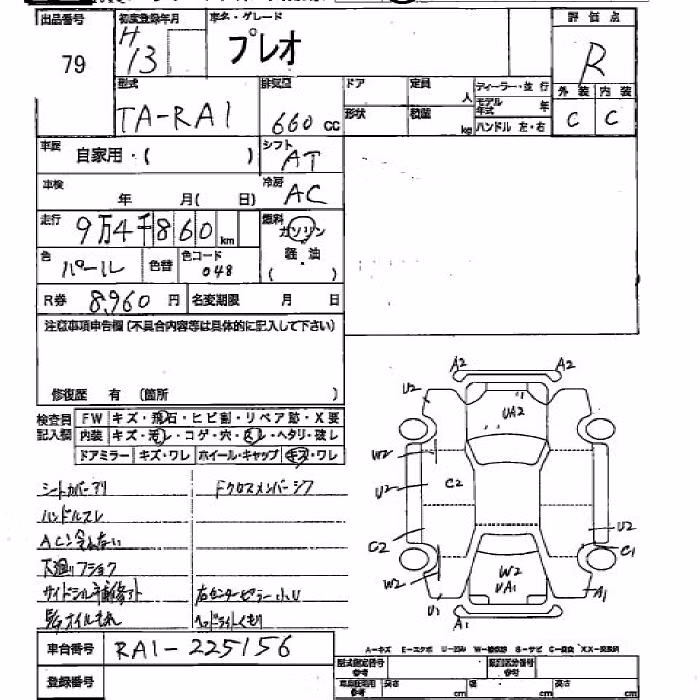 出品番号 初度登録年月 車名・グレード 評価点
79 H 13 プレオ R
型式 排気量 ドア 定員 人 ディーラー・並行 外装 内装
TA-RA1 660 cc 形状 積載 kg モデル年式 年 ハンドル 左・右 C C
車歴 自家用・( ) シフト AT
車検 年 月( 日) 冷房 AC
走行 9万4千860 km 燃料 ガソリン
色 パール 色替 色コード 048 軽・油
( )
R券 8,960 円 名変期限 月 日
注意事項申告欄(不具合内容等は具体的に記入して下さい)
修復歴 有 (箇所 )
検査員 FW キズ・飛石・ヒビ割・リペア跡・X要
記入欄 内装 キズ・汚レ・コゲ・穴・スレ・ヘタリ・破レ
ドアミラー キズ・ワレ ホイール・キャップ キズ・ワレ
シートカバーアリ Fクロスメンバーシフ
ハンドルスレ
ACこ冷えない
下廻りフショク
サイドシル 右センターピラー小U
オイルもれ ヘッドライトくもり
車台番号 RA1-225156
登録番号
A2 A2
U2 UA2
W2
U2 C2
C2 U2
C1
W2 W2
UA1
U1 A1
A1
A-キズ E-エクボ U-凹み W-補修跡 S-サビ C-腐食 XX-交換済
型式指定番号 類別区分番号
長さ cm 幅 cm 高さ cm